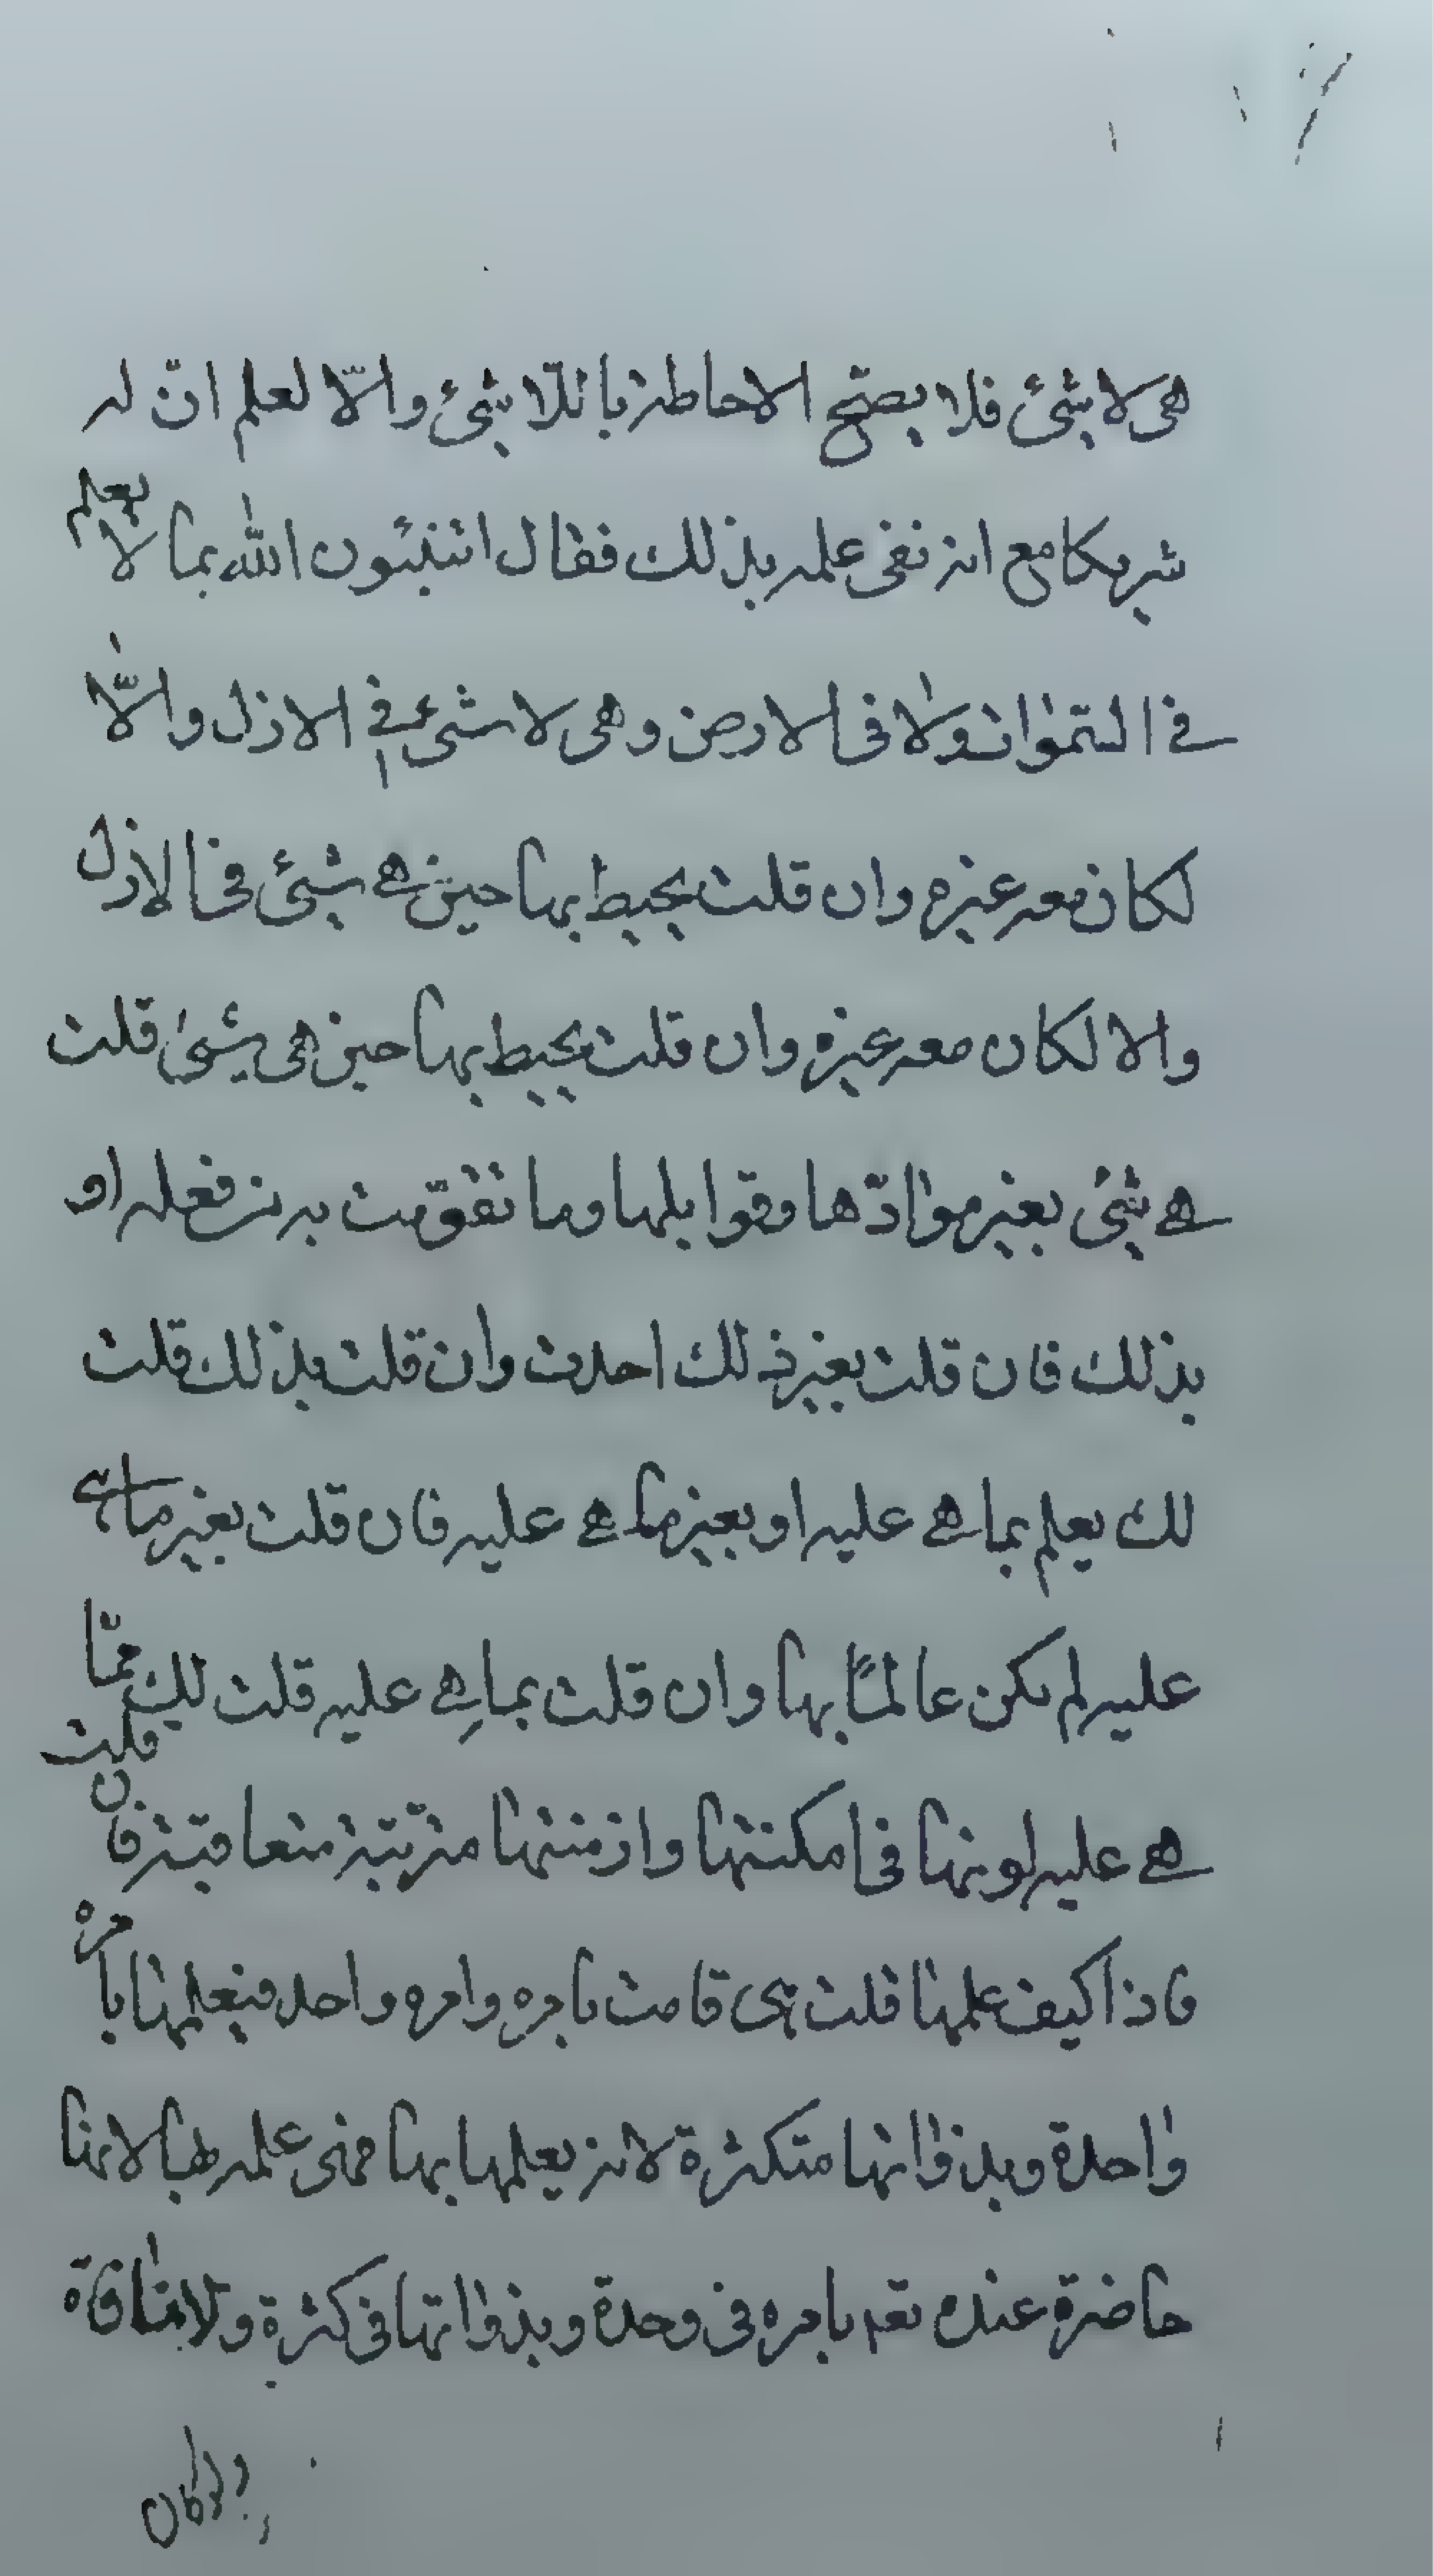 هى لا شئ فلا يصحّ الاحاطة باللّا شئ والّا لعلم انّ له
شريكا مع انه نفى علمه بذلك فقال اتنبئون الله بما لا يعلم
في السّمٰوات ولا فى الارض وهى لا شئ في الازل والّا
لكان معه غيره وان قلت يحيط بها حين هے شئ فى الازل
والا لكان معه غيره وان قلت يحيط بها حين هى شئ قلت
هے شئ بغير موادّها وقوابلها وما تقوّمت به من فعله او
بذلك فان قلت بغير ذلك احدث وان قلت بذلك قلت
لك يعلم بما هے عليه او بغير ما هے عليه فان قلت بغير ما هے
عليه لم يكن عالمًا بها وان قلت بما هے عليه قلت لك ممّا
هے عليه كونها فى امكنتها وازمنتها مترتّبة متعاقبة فان قلت
فاذا كيف علمها قلت هى قامت بامره وامره واحد فيعلمها بامره
واحدة وبذواتها متكثرة لانه يعلمها بها فهى علمه بها لانها
حاضرة عنده نعم بامره فى وحدة وبذواتها فى كثرة ولا منافاة